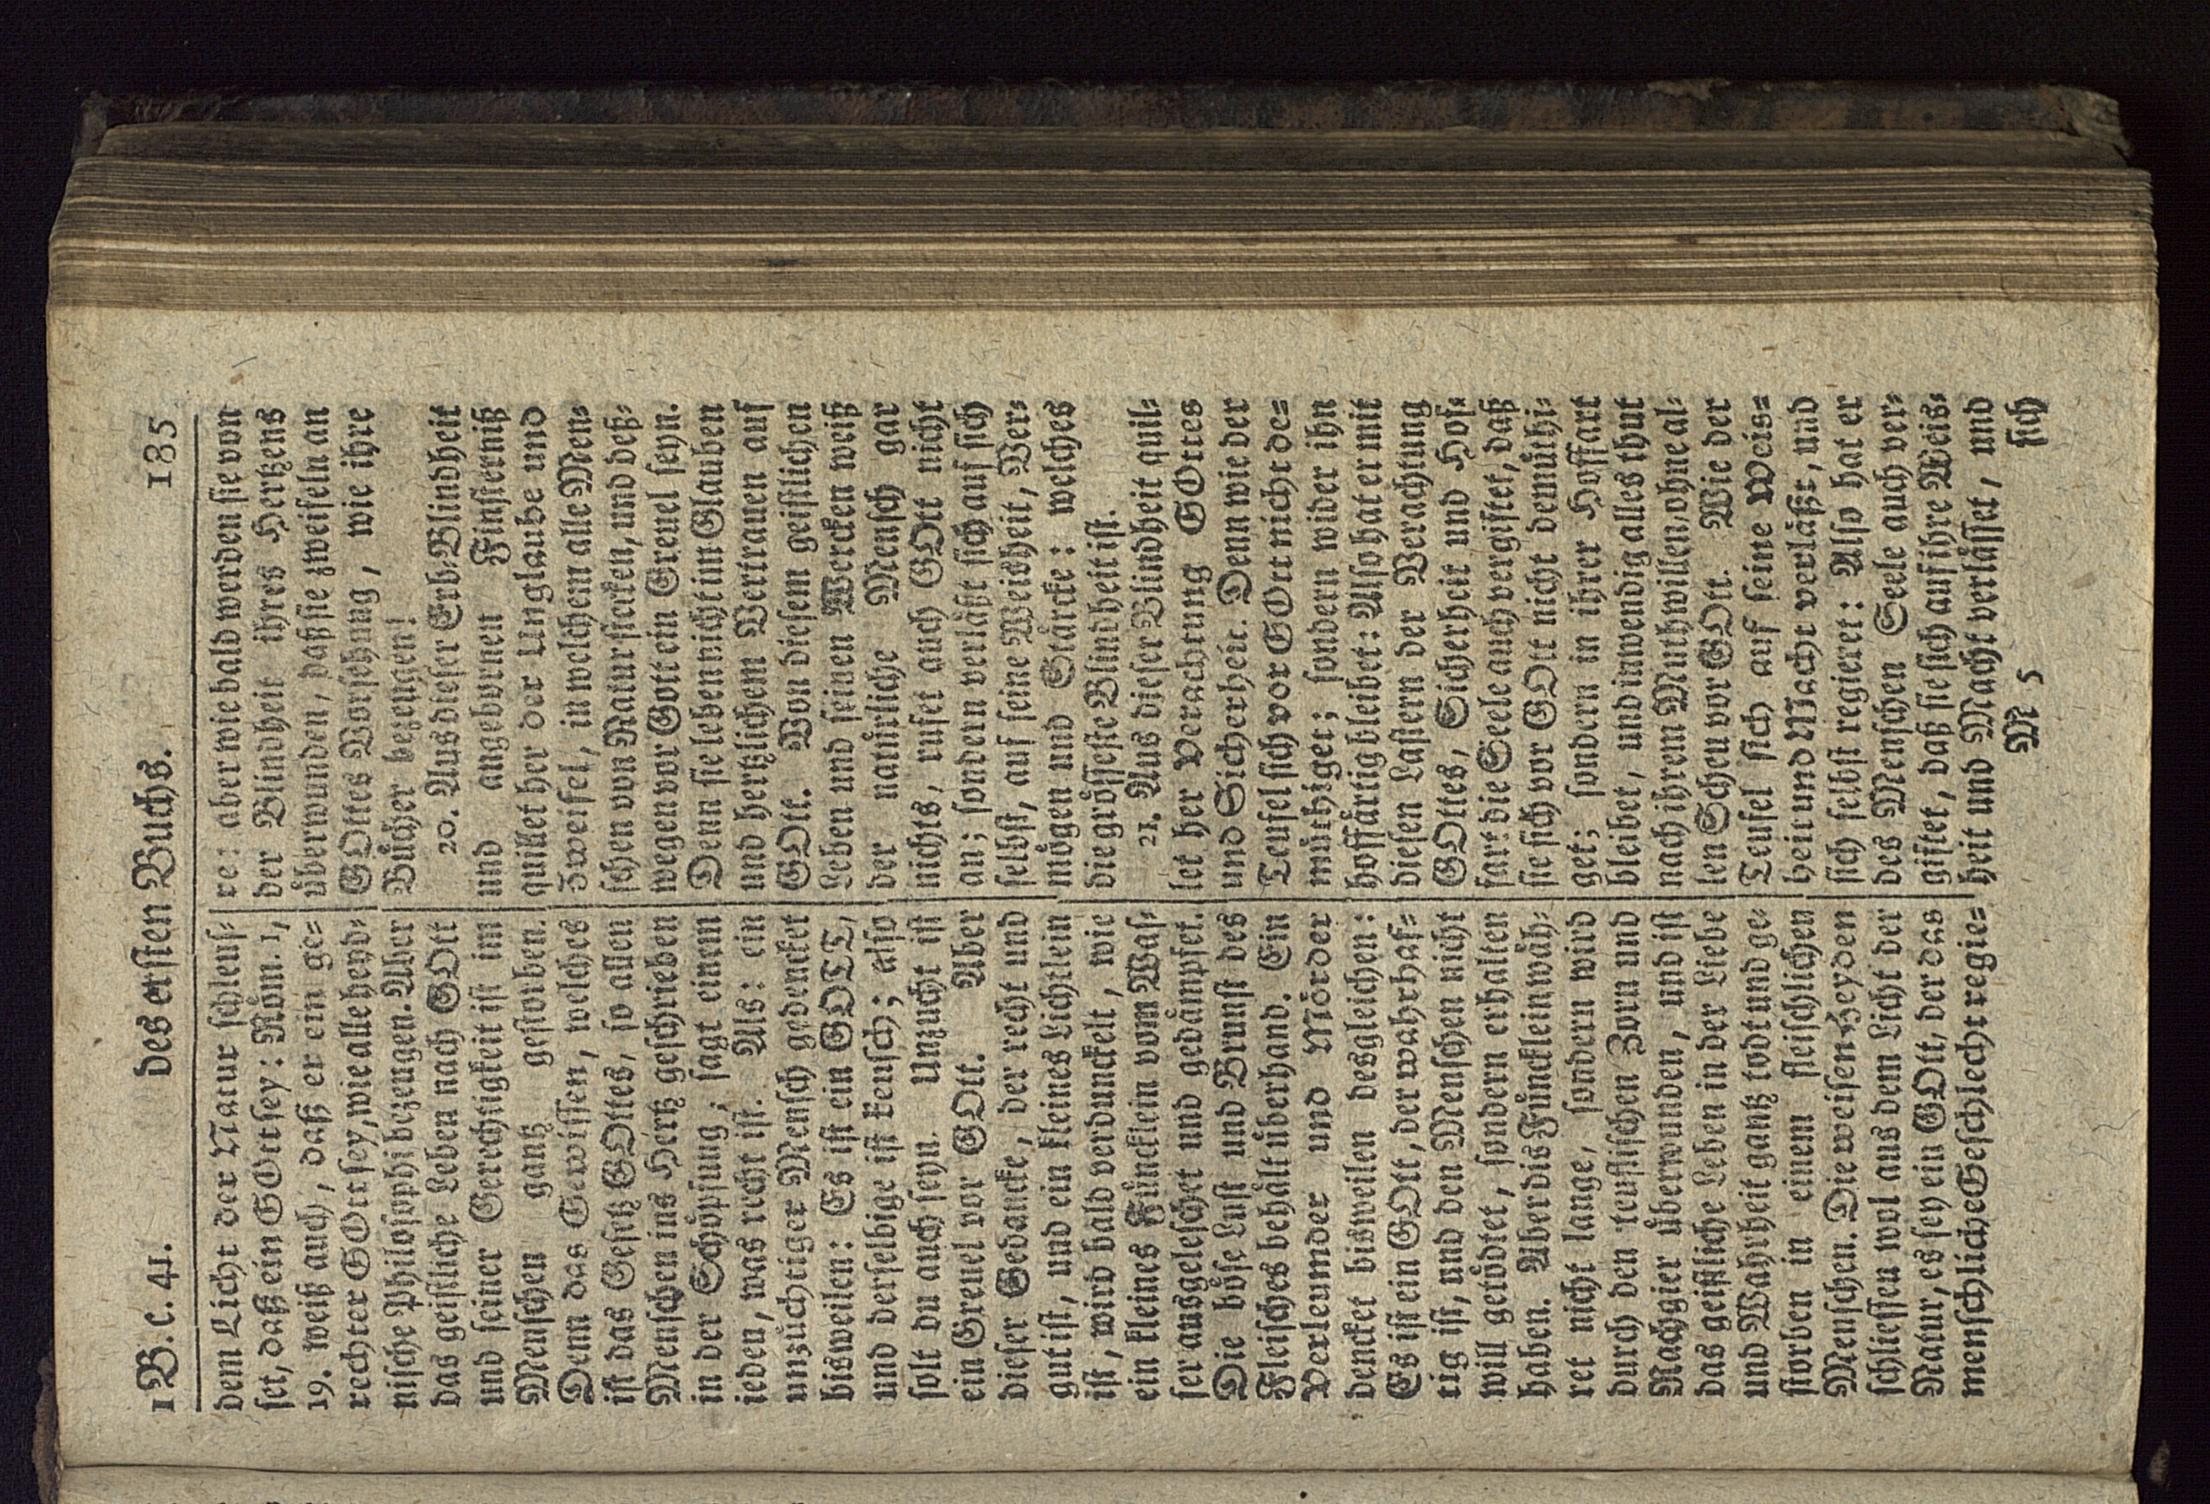 1 B. C. 41. des ersten Buchs. 185
dem Licht der Natur schleuſ-
ſet, daß ein GOtt ſey: Röm. 1,
19. weiß auch, daß er ein ge-
rechter GOtt ſey, wie alle heyd-
niſche Philoſophi bezeugen. Aber
das geiſtliche Leben nach GOtt
und ſeiner Gerechtigkeit iſt im
Menſchen gantz geſtorben.
Denn das Gewiſſen, welches
iſt das Geſetz GOttes, ſo allen
Menſchen ins Hertz geſchrieben
in der Schöpfung, ſagt einem
ieden, was recht iſt. Als: ein
unzüchtiger Menſch gedencket
bisweilen: Es iſt ein GOTT,
und derſelbige iſt keuſch; alſo
ſolt du auch ſeyn. Unzucht iſt
ein Greuel vor GOtt. Aber
dieſer Gedancke, der recht und
gut iſt, und ein kleines Lichtlein
iſt, wird bald verdunckelt, wie
ein kleines Füncklein vom Waſ-
ſer ausgeleſchet und gedämpfet.
Die böſe Luſt und Brunſt des
Fleiſches behält überhand. Ein
Verleumder und Mörder
dencket bisweilen desgleichen:
Es iſt ein GOtt, der wahrhaf-
tig iſt, und den Menſchen nicht
will getödtet, ſondern erhalten
haben. Aber dis Füncklein wäh-
ret nicht lange, ſondern wird
durch den teufliſchen Zorn und
Rachgier überwunden, und iſt
das geiſtliche Leben in der Liebe
und Wahrheit gantz todt und ge-
ſtorben in einem fleiſchlichen
Menſchen. Die weiſen Heyden
ſchlieſſen wol aus dem Licht der
Natur, es ſey ein GOtt, der das
menſchliche Geſchlecht regie-
re: aber wie bald werden ſie von
der Blindheit ihres Hertzens
überwunden, daß ſie zweifeln an
GOttes Vorſehung, wie ihre
Bücher bezeugen!
20. Aus dieſer Erb-Blindheit
und angebornen Finſterniß
quillet her der Unglaube und
Zweifel, in welchem alle Men-
ſchen von Natur ſtecken, und deß-
wegen vor Gott ein Greuel ſeyn.
Denn ſie leben nicht im Glauben
und hertzlichem Vertrauen auf
GOtt. Von dieſem geiſtlichen
Leben und ſeinen Wercken weiß
der natürliche Menſch gar
nichts, rufet auch GOtt nicht
an; ſondern verläßt ſich auf ſich
ſelbſt, auf ſeine Weisheit, Ver-
mögen und Stärcke: welches
die gröſſeſte Blindheit iſt.
21. Aus dieſer Blindheit quil-
let her Verachtung GOttes
und Sicherheit. Denn wie der
Teufel ſich vor GOtt nicht de-
müthiget; ſondern wider ihn
hoffärtig bleibet: Alſo hat er mit
dieſen Laſtern der Verachtung
GOttes, Sicherheit und Hof-
fart die Seele auch vergiftet, daß
ſie ſich vor GOtt nicht demüthi-
get; ſondern in ihrer Hoffart
bleibet, und inwendig alles thut
nach ihrem Muthwillen, ohne al-
len Scheu vor GOtt. Wie der
Teufel ſich auf ſeine Weis-
heit und Macht verläßt, und
ſich ſelbſt regieret: Alſo hat er
des Menſchen Seele auch ver-
giftet, daß ſie ſich auf ihre Weis-
heit und Macht verläſſet, und
M 5 ſich